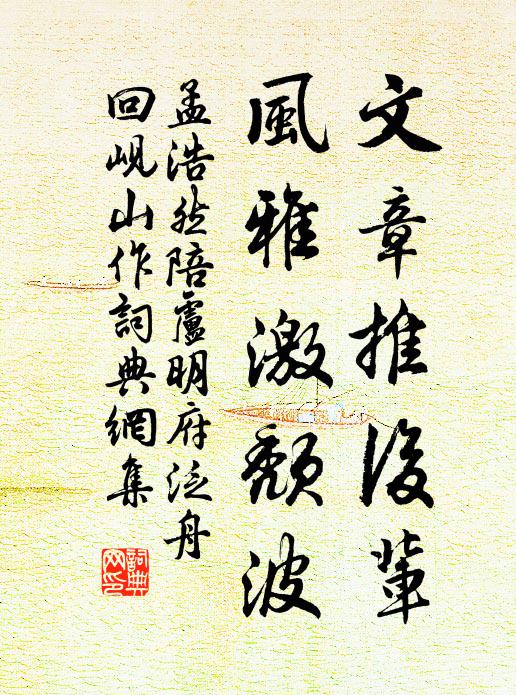 文章推後輩
風雅激頹波
孟浩然陪盧明府泛舟
回峴山作詞典網集
詞典网印